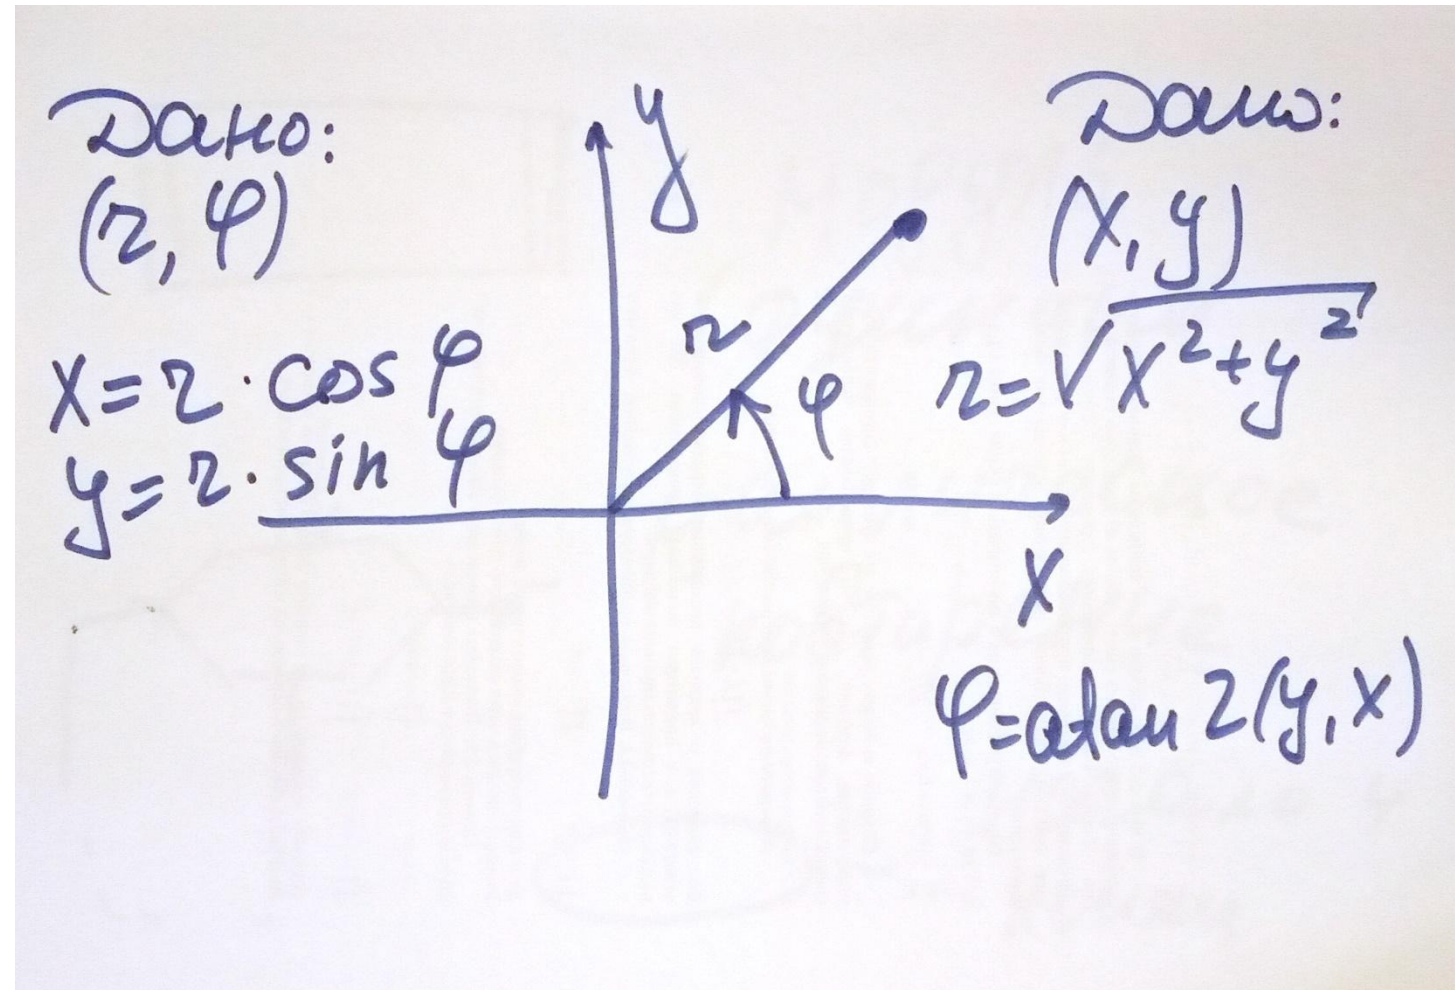 Дано:
(r, φ)
x = r · cos φ
y = r · sin φ
y
r
φ
x
Дано:
(x, y)
r = √x²+y²
φ = atan 2(y, x)